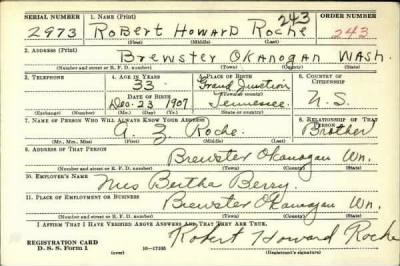 SERIAL NUMBER 1. NAME (Print) ORDER NUMBER
2973 Robert Howard Roche 243 243
(First) (Middle) (Last)
2. ADDRESS (Print)
Brewster Okanogan Wash.
(Number and street or R. F. D. number) (Town) (County) (State)
3. TELEPHONE 4. AGE IN YEARS 5. PLACE OF BIRTH 6. COUNTRY OF CITIZENSHIP
33 Grand Junction
DATE OF BIRTH (Town or county)
Dec. 23 1907 Tennessee U.S.
(Exchange) (Number) (Mo.) (Day) (Yr.) (State or country)
7. NAME OF PERSON WHO WILL ALWAYS KNOW YOUR ADDRESS 8. RELATIONSHIP OF THAT PERSON
Roche. Brother
(Mr., Mrs., Miss) (First) (Middle) (Last)
9. ADDRESS OF THAT PERSON
Brewster Okanogan Wn.
(Number and street or R. F. D. number) (Town) (County) (State)
10. EMPLOYER'S NAME
Mrs Bertha Berry
11. PLACE OF EMPLOYMENT OR BUSINESS
Brewster Okanogan Wn.
(Number and street or R. F. D. number) (Town) (County) (State)
I AFFIRM THAT I HAVE VERIFIED ABOVE ANSWERS AND THAT THEY ARE TRUE.
Robert Howard Roche
REGISTRATION CARD
D. S. S. Form 1 (over) (Registrant's signature)